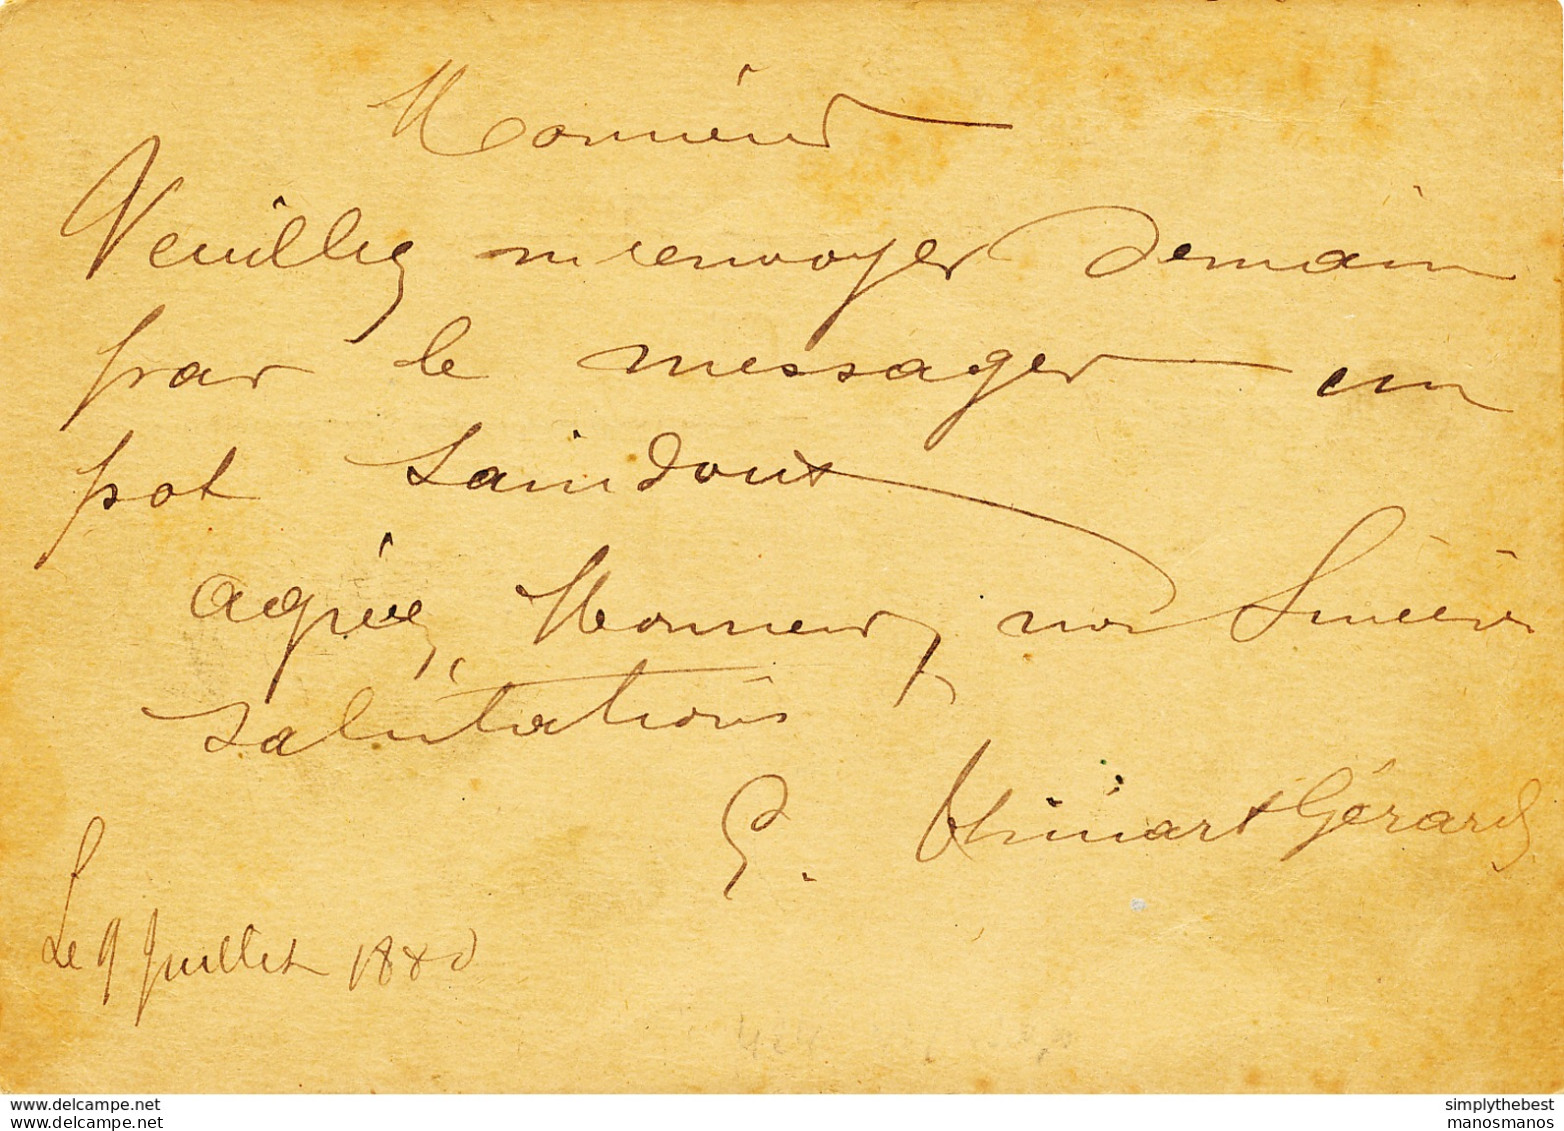 Monsieur
Veuillez m'renvoyer demain
par le messager un
pot saindoux
agréez, Monsieur, nos Sincères
salutations
G. Thimart Gérard
Le 9 Juillet 1880
www.delcampe.net
simplythebest
manosmanos